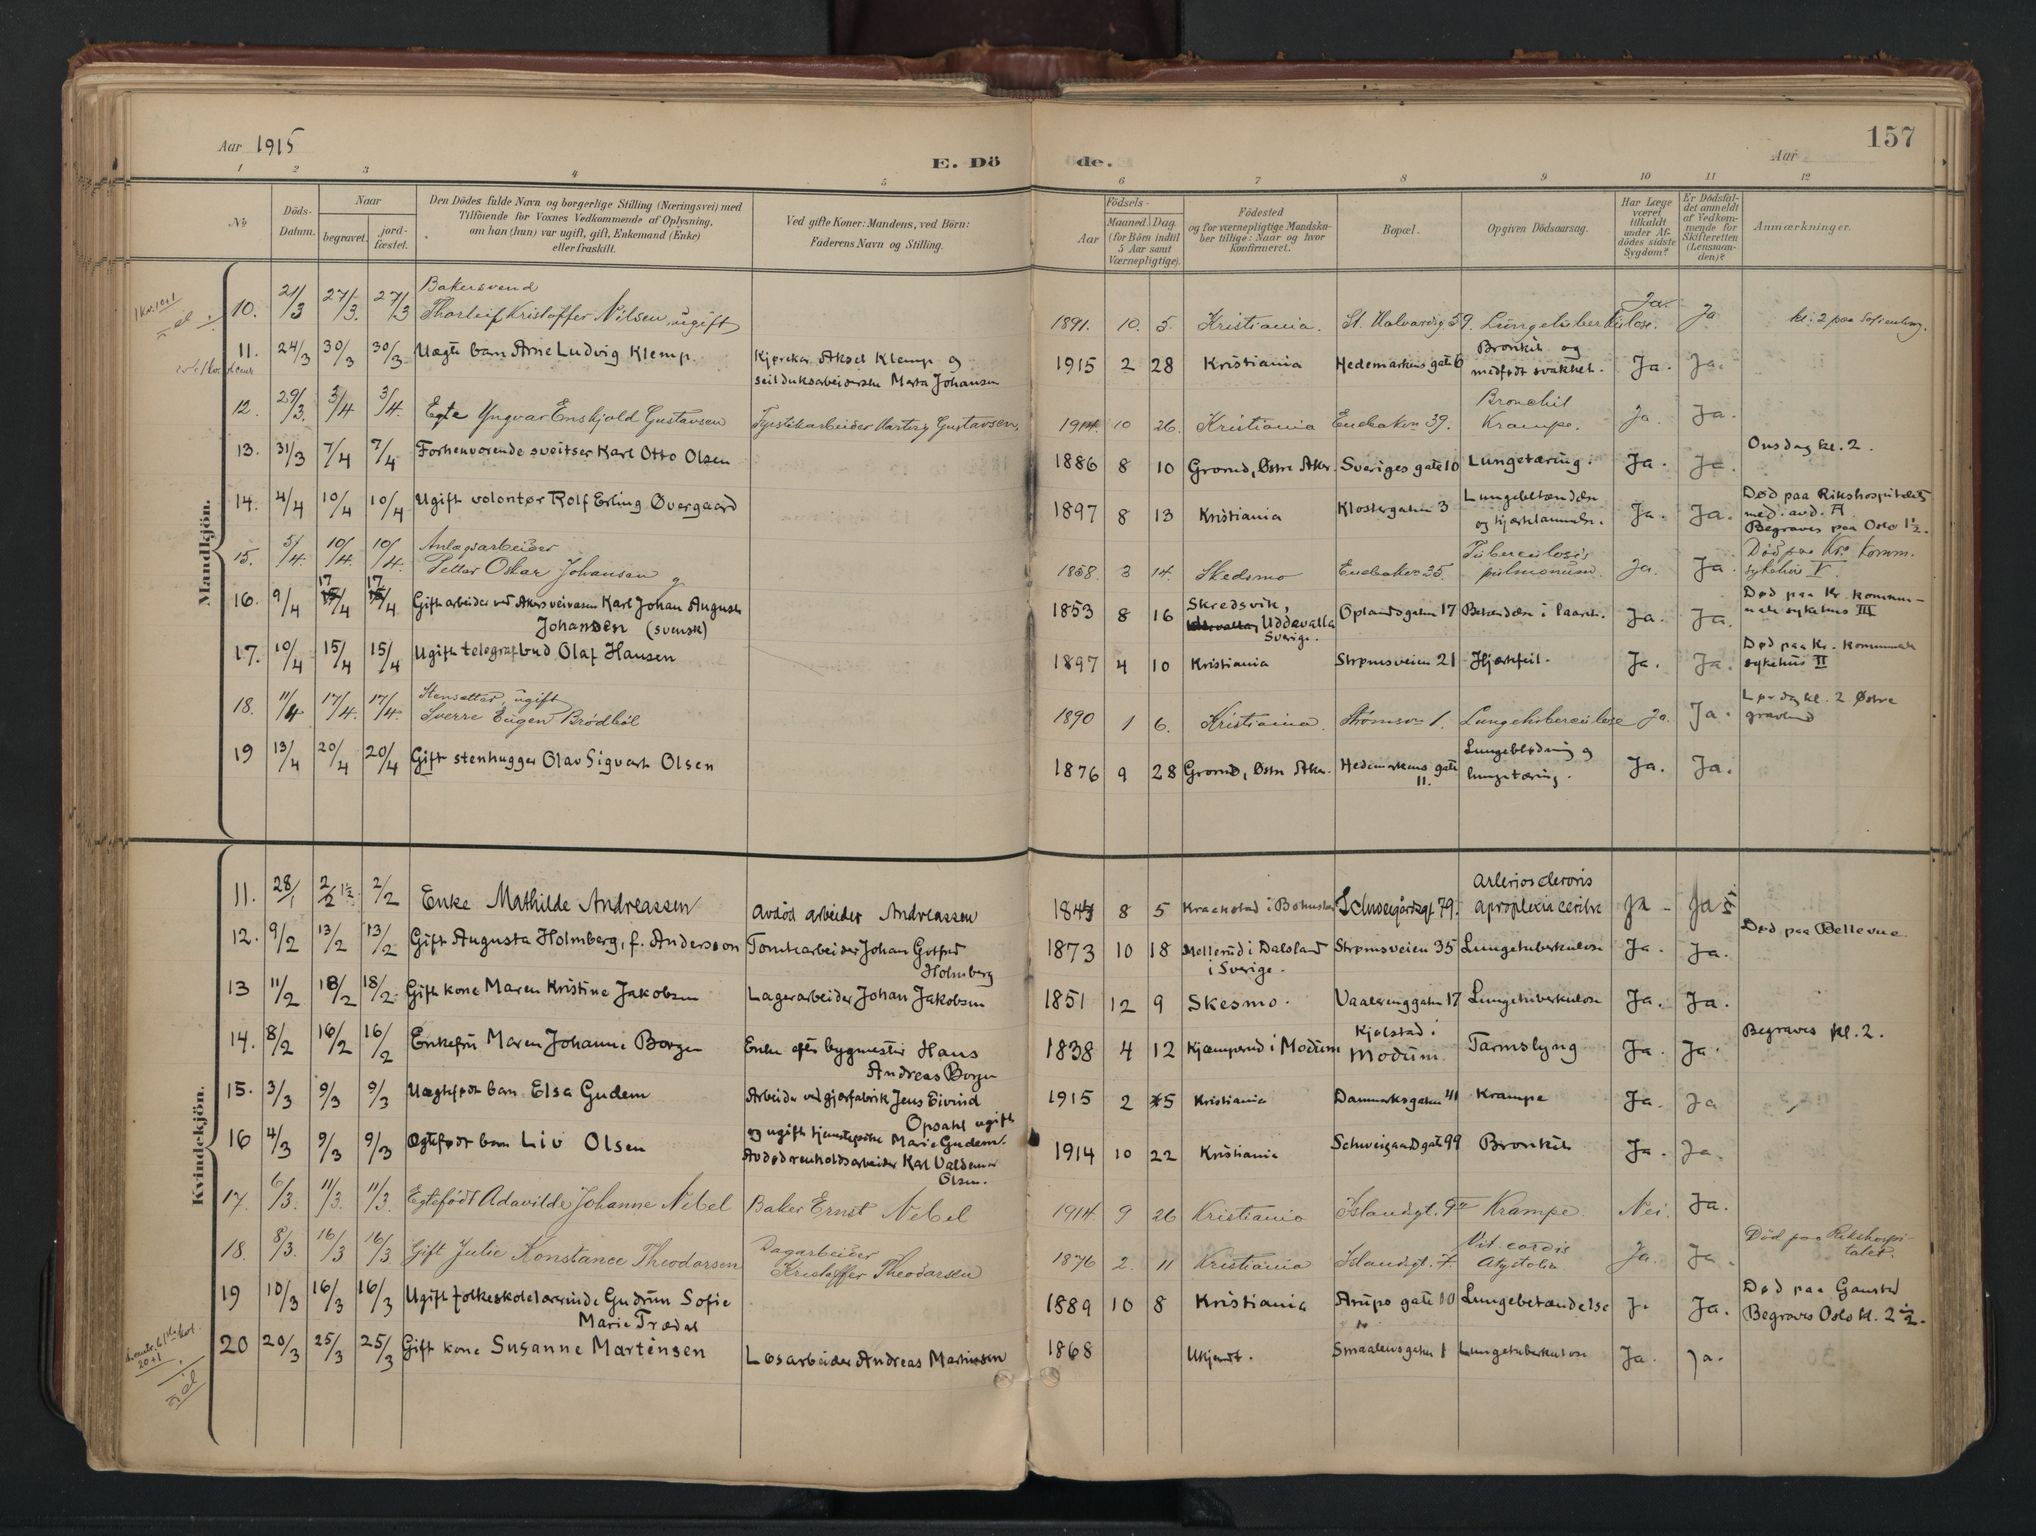 157
Aar 1915
E. Dö de.
Aar
1 2 3 4 5 6 7 8 9 10 11 12
No
Döds-Datum.
Naar
begravet.
jord-fæstet.
Den Dödes fulde Navn og borgerlige Stilling (Næringsvei) med
Tilföiende for Voxnes Vedkommende af Oplysning,
om han (hun) var ugift, gift, Enkemand (Enke)
eller fraskilt.
Ved gifte Koner: Mandens, ved Börn:
Faderens Navn og Stilling.
Födsels-
Aar
Maaned. Dag
(for Börn indtil
5 Aar samt
Værnepligtige).
Födested
og for værnepligtige Mandska-
ber tillige: Naar og hvor
Konfirmeret.
Bopæl.
Opgiven Dödsaarsag.
Har Læge
været
tilkaldt
under Af-
dödes sidste
Sygdom?
Er Dödsfal-
det anmeldt
af Vedkom-
mende for
Skifteretten
(Lensman-
den)?
Anmærkninger.
Mandkjön.
10. 21/3 27/3. 27/3 Bakersvend
Thorleif Kristoffer Nilsen, ugift 1891. 10. 5. Kristiania. St. Halvardsg. 59. Lungetuberkulose. Ja. Ja kl. 2 paa Sofienberg.
11. 24/3 30/3 30/3 Uægte barn Arne Ludvig Klemp. Kjørekar Aksel Klemp og
seilduksarbeiderske Marta Johansen 1915 2 28 Kristiania Hedemarkens gate 6 Bronkit og
medfødt svakhet. Ja. Ja.
12. 29/3. 3/4 3/4. Egte Yngvar Enskjold Gustavsen Fyrstikarbeider Hartvig Gustavsen. 1914. 10 26. Kristiania Enebakvn 39. Bronchit
Krampe. Ja Ja.
13. 31/3 7/4 7/4 Forhenværende sveitser Karl Otto Olsen 1886 8 10 Grorud, Østre Aker. Sveriges gate 10 Lungetæring. Ja. Ja. Onsdag kl. 2.
14. 4/4 10/4 10/4 Ugift volontør Rolf Erling Øvergaard 1897 8 13 Kristiania Klostergaten 3 Lungebetændelse
og hjertelammelse. Ja. Ja. Død paa Rikshospitalets
med. avd. A
Begraves paa Oslo 1½.
15. 5/4 10/4. 10/4. Anlægsarbeider
Petter Oskar Johansen g 1858. 3 14. Skedsmo Enebakvn 35. Tuberculosis
pulmonum. Ja. Ja. Død paa Kra Komm.
sykehus V.
16. 9/4 17/4 17/4 Gift arbeider ved Akers veivæsen Karl Johan August
Johansen (svensk) 1853 8 16 Skredsvik,
Uddevalla
Sverige. Oplandsgaten 17 Betændelse i Ja. Ja. Død paa Kr. kommu-
nale sykehus III
17. 10/4 15/4 15/4 Ugift telegrafbud Olaf Hansen 1897 4 10 Kristiania Strømsveien 21 Hjertfeil. Ja. Ja. Død paa Kr. kommunale
sykehus II
18. 11/4 17/4. 17/4. Stensætter, ugift
Sverre Eugen Brödböl 1890 1 6. Kristiania. Strømsv. 1. Lungetuberculose Ja. Ja. Lørdag kl. 2 Østre
gravlund
19 13/4 20/4 20/4 Gift stenhugger Olav Sigvart Olsen 1876 9 28 Grorud, Østre Aker. Hedemarkens gate
11. Lungeblødning og
lungetæring. Ja. Ja.
Kvindekjön.
11. 28/1 2/2 1½ 2/2 Enke Mathilde Andreassen Avdød arbeider Andreassen 8 5 i Bohuslen Schweigårdsgt 79. Arteriosclerosis
apoplexia cerebri Ja Ja
12. 9/2 13/2 13/2 Gift Augusta Holmberg, f. Andersson Tomtearbeider Johan Gotfred
Holmberg 1873 10 18 Mellerud i Dalsland
i Sverige. Strømsveien 35 Lungetuberkulose Ja. Ja. Død paa Bellevue
13 11/2 18/2 18/2. Gift kone Maren Kristine Jakobsen Lagerarbeider Johan Jakobsen 1851 12 9 Skesmo. Vaalerenggaten 17 Lungetuberkulose Ja. Ja.
14. 8/2 16/2 16/2 Enkefru Maren Johanne Borgen Enke efter bygmester Hans
Andreas Borgen 1838 4 12 Kjæmperud i Modum Kjølstad i
Modum. Tarmslyng Ja. Ja. Begraves kl. 2.
15. 3/3 9/3 9/3 Uægtefødt barn Elsa Gudem Arbeider ved gjærfabrik Jens Eivind
Opsahl ugift
og ugift tjenestepike Marie Gudem. 1915 2 5 Kristiania Danmarksgaten 41 Krampe Ja. Ja
16 4/3 9/3 9/3 Ægtefødt barn Liv Olsen Avdød renholdsarbeider Karl Valdemar
Olsen. 1914 10 22 Kristiania Schweigaardgate 99 Bronkit Ja. Ja.
17. 6/3. 11/3. 11/3. Egtefødt Adavilde Johanne Nebel Baker Ernst Nebel 1914. 9 26 Kristiania Islandsgt. Krampe. Nei. Ja.
18. 8/3. 16/3 16/3 Gift Julie Konstance Theodorsen Dagarbeider
Kristoffer Theodorsen 1876 2. 11 Kristiania Islandsgt. 7. Vit. cordis
Asystolia Ja Ja. Død paa Rikshospi-
talet.
19 10/3 16/3 16/3 Ugift folkeskolelærerinde Gudrun Sofie
Marie Trædal 1889 10 8 Kristiania Arups gate 10 Lungebetændelse J. Ja. Død paa Gausted
Begraves Oslo kl. 2½.
20 20/3 25/3 25/3 Gift kone Susanne Martensen Løsarbeider Andreas Martinsen 1868 Ukjendt. Smaalensgaten 1 Lungetuberkulose Ja. Ja.
20+1